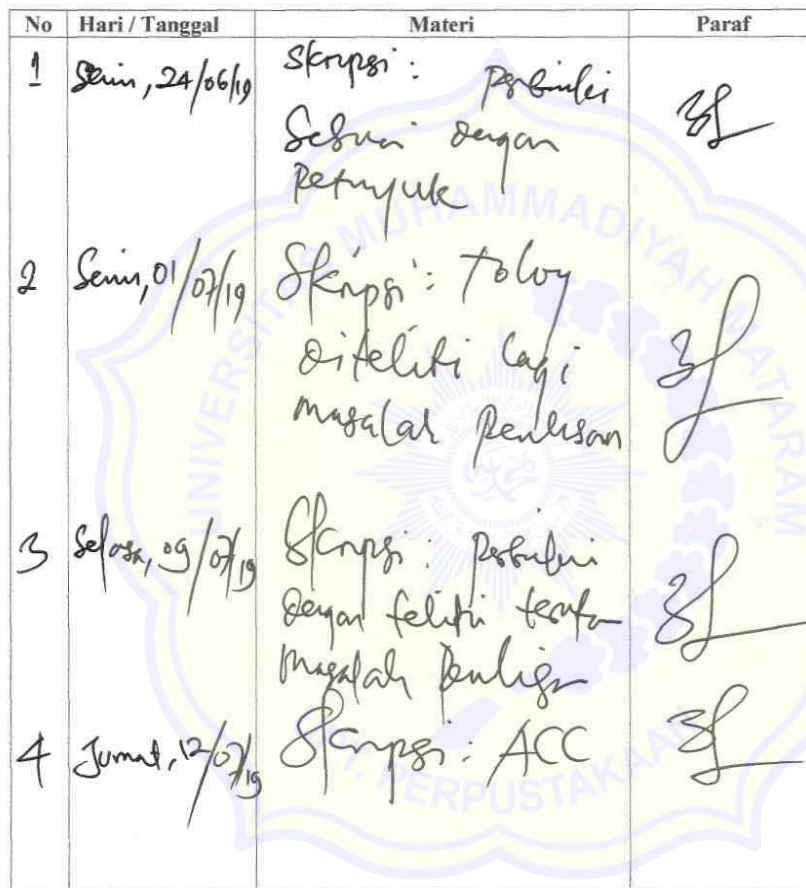 No Hari / Tanggal Materi Paraf
1 Senin, 24/06/19 Skripsi : Perbaiki
Sesuai dengan
Petunjuk
2 Senin, 01/07/19 Skripsi : tolog
diteliti lagi
masalah Penulisan
3 Selasa, 09/07/19 Skripsi : Perbaiki
dengan teliti
masalah Penulisan
4 Jumat, 12/07/19 Skripsi : ACC
UNIVERSITAS MUHAMMADIYAH MATARAM
PT. PERPUSTAKAAN